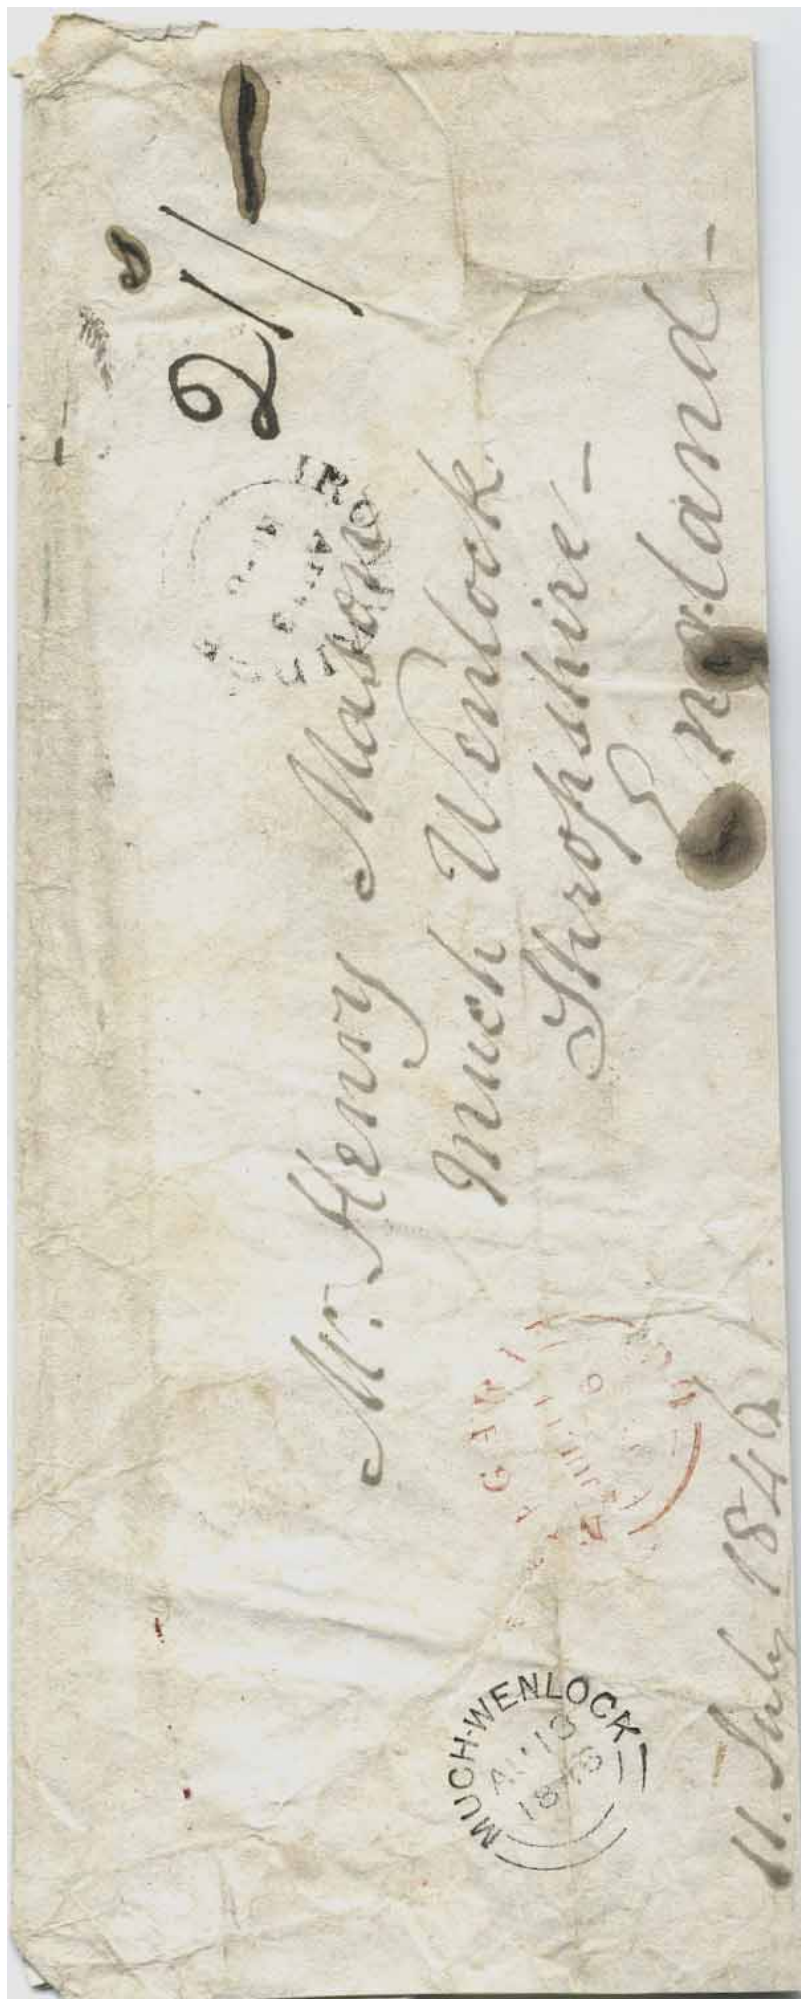 2/-
Mr. Henry Mason
Much Wenlock
Shropshire -
England -
11. July 1846
MUCH-WENLOCK
AU 13
1846
IRO
JUL 11